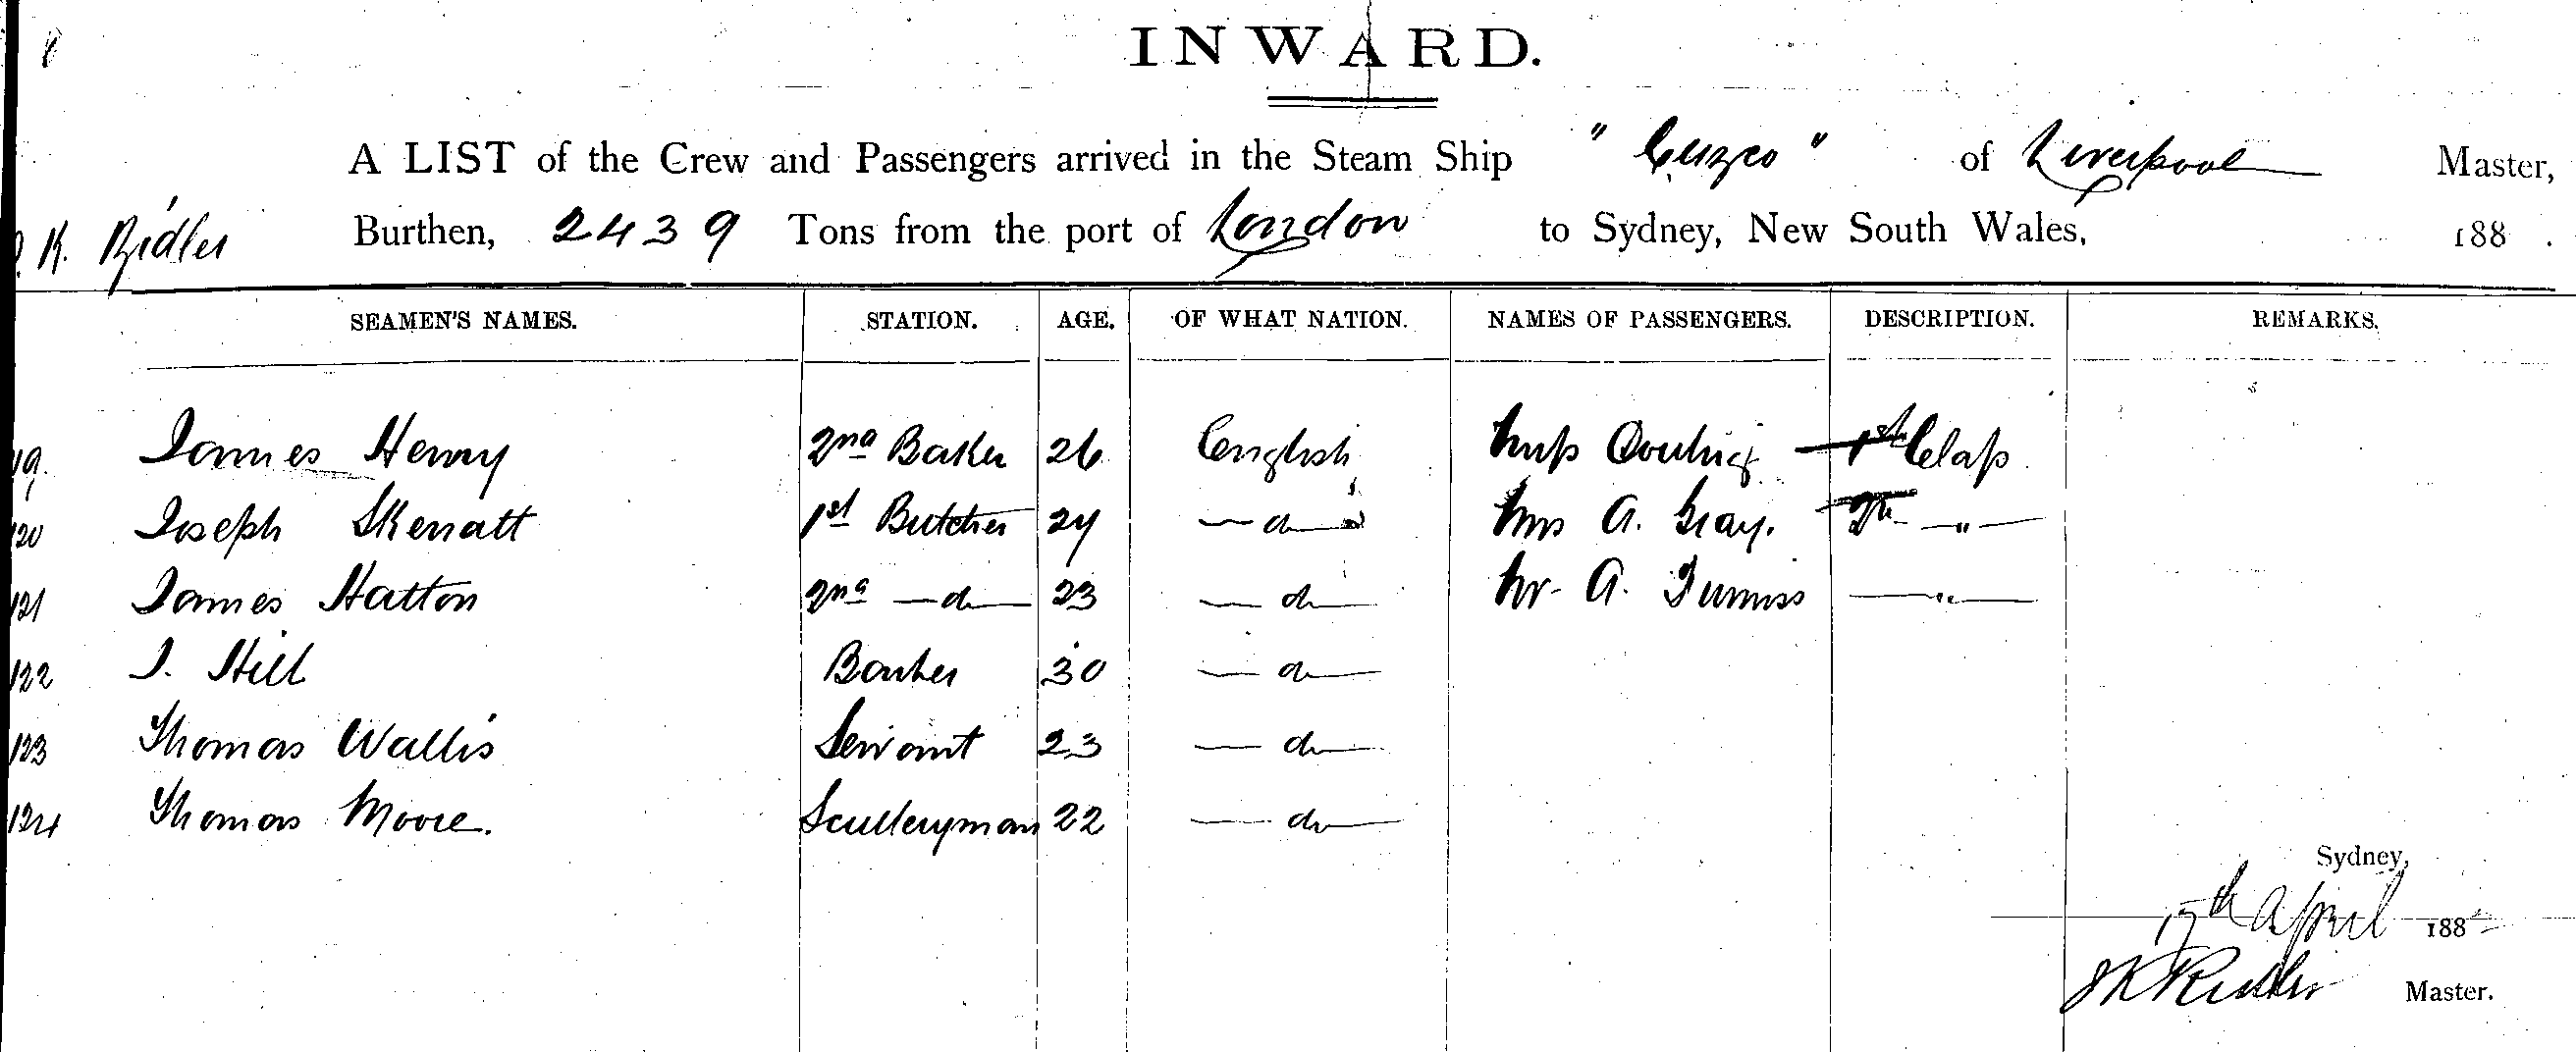 INWARD.
A LIST of the Crew and Passengers arrived in the Steam Ship "Cuzco" of Liverpool Master,
K. Ridler Burthen, 2439 Tons from the port of London to Sydney, New South Wales, 188 .
SEAMEN'S NAMES. STATION. AGE. OF WHAT NATION. NAMES OF PASSENGERS. DESCRIPTION. REMARKS.
19. James Henry 2nd Baker 26 English Miss 1st Class
120 Joseph Skerratt 1st Butcher 24 — do — Mrs A. Gray. 2nd — " —
121 James Hatton 2nd — do — 23 — do — Mr A. Furniss — " —
122 J. Hill 30 — do —
123 Thomas Wallis Servant 23 — do —
124 Thomas Moore. Sculleryman 22 — do —
Sydney,
17th April 188
J K Ridler Master.